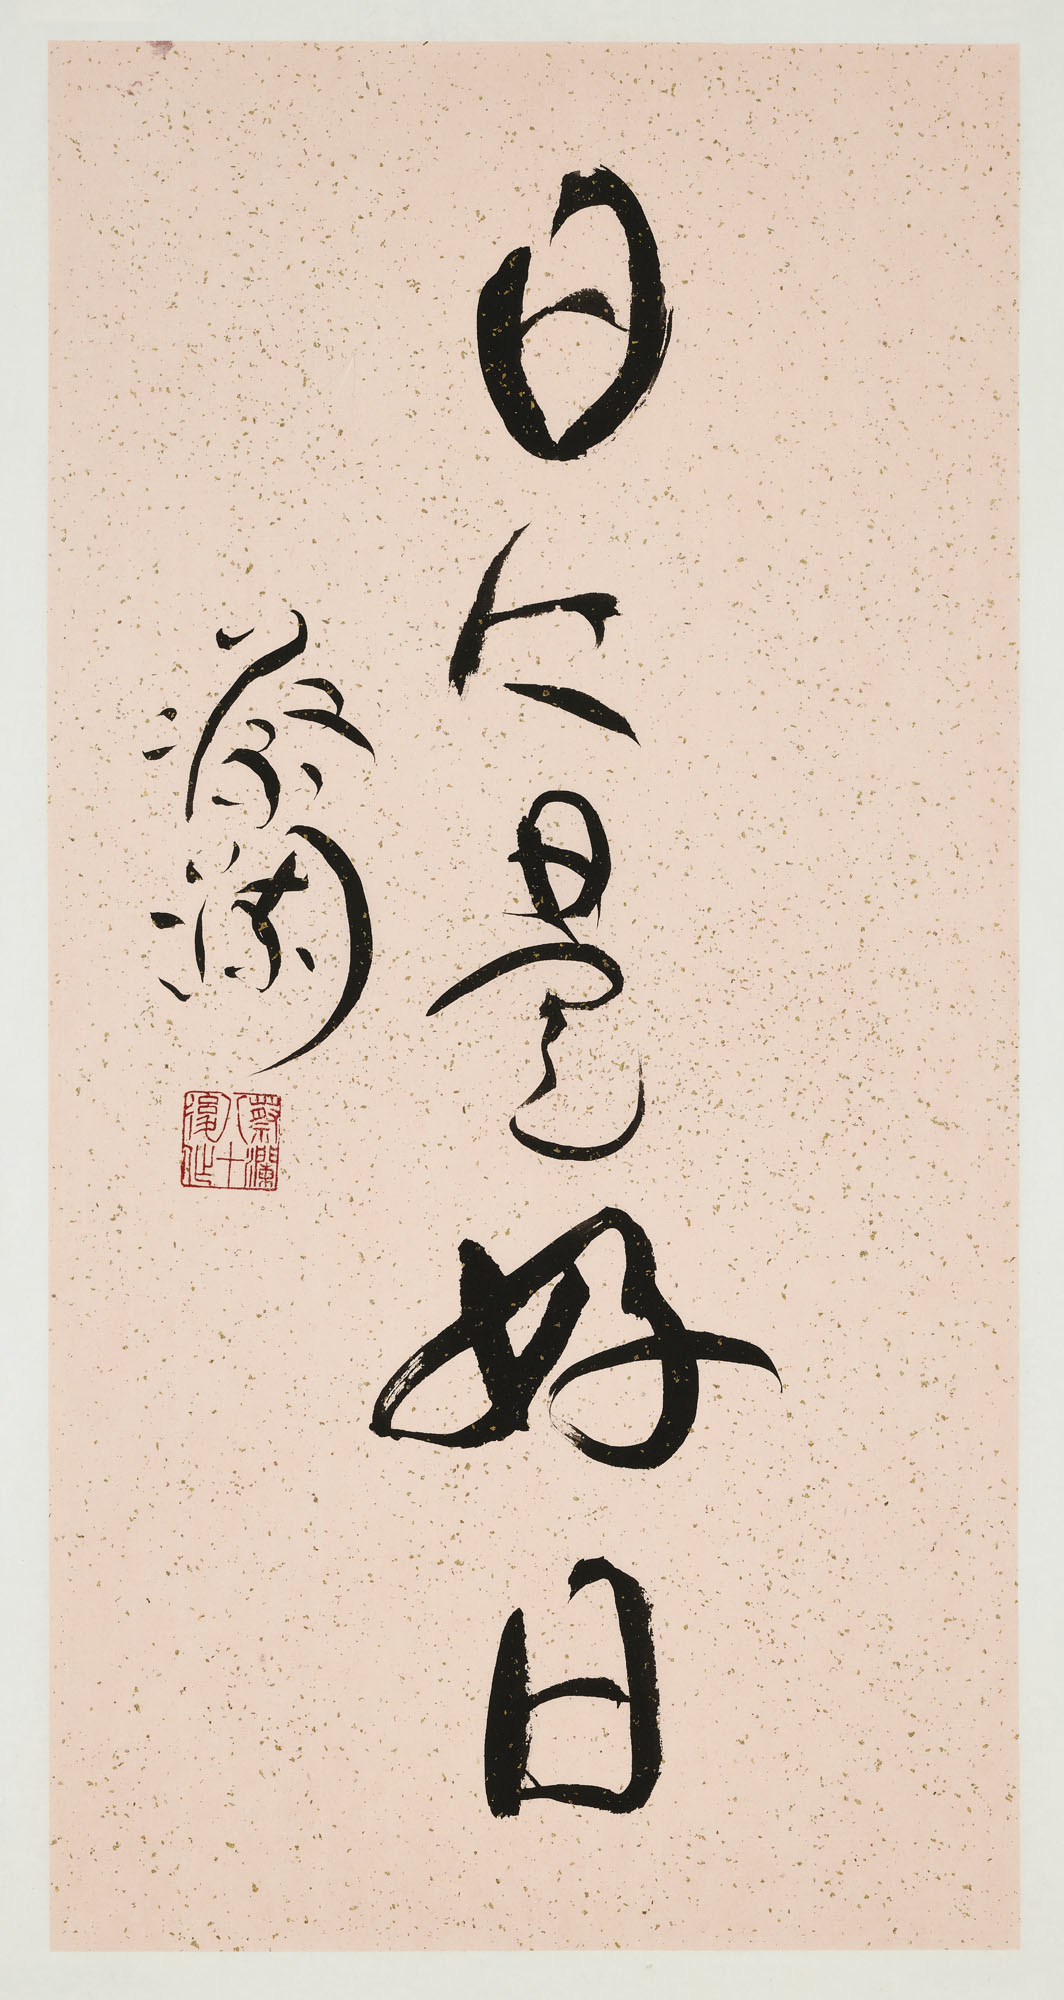 日々是好日
蔡瀾
蔡瀾
八十
後作